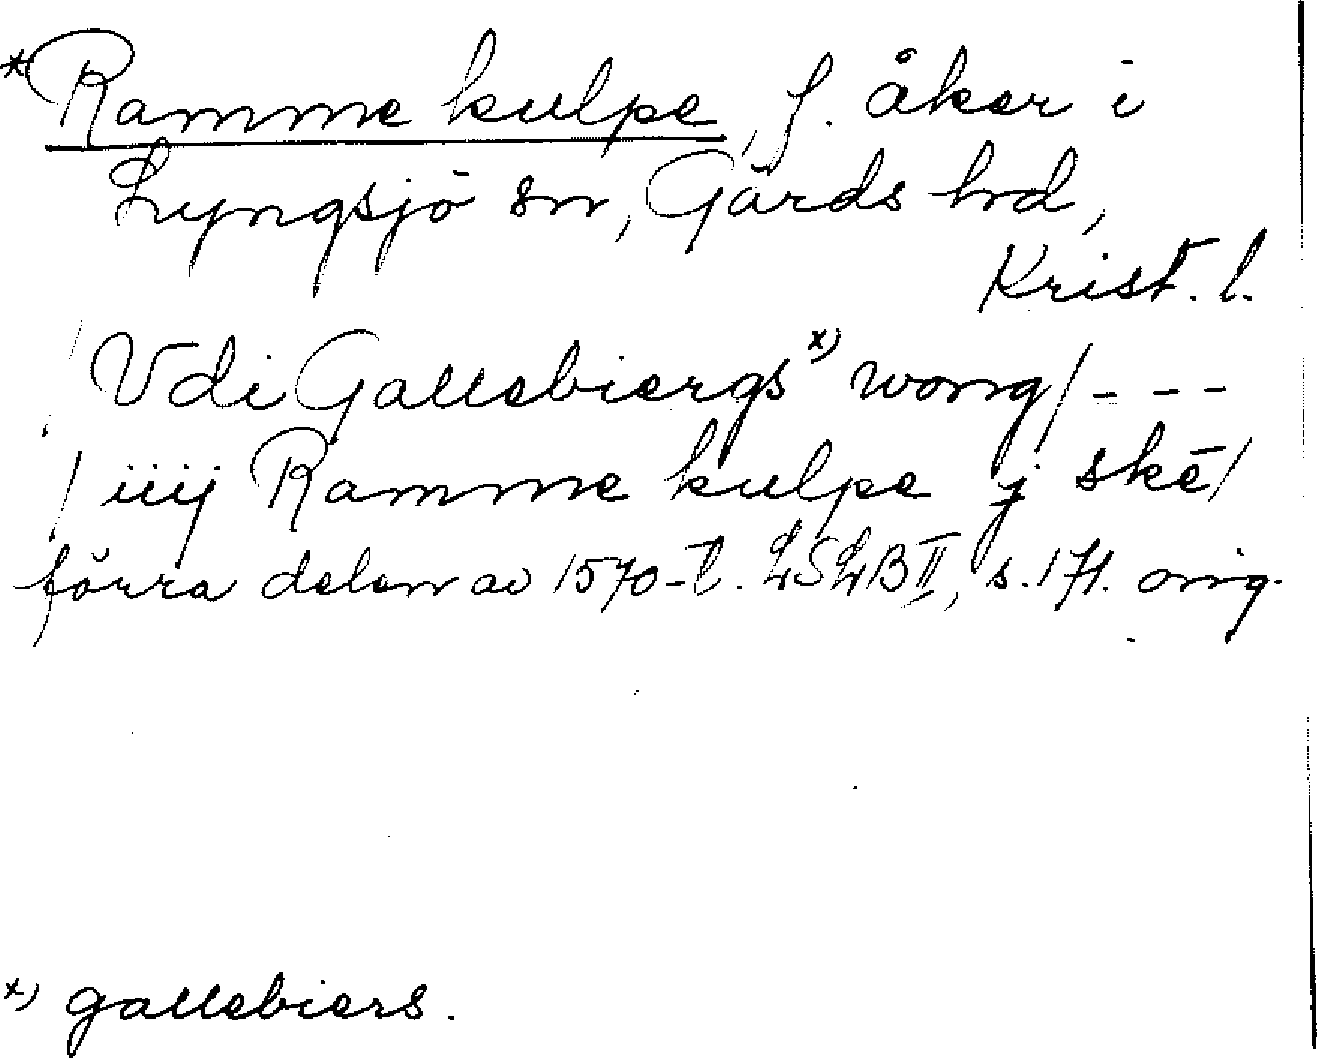 *Ramme kulpe, f. åker i
Lyngsjö sn, Gärds hd,
Krist. l.
/ Vdi Gallebiergs x) wong / - - -
/ iiij Ramme kulpe j skē /
förra delen av 1570-t. LSLB II, s. 171. orig.
x) gallebiers.